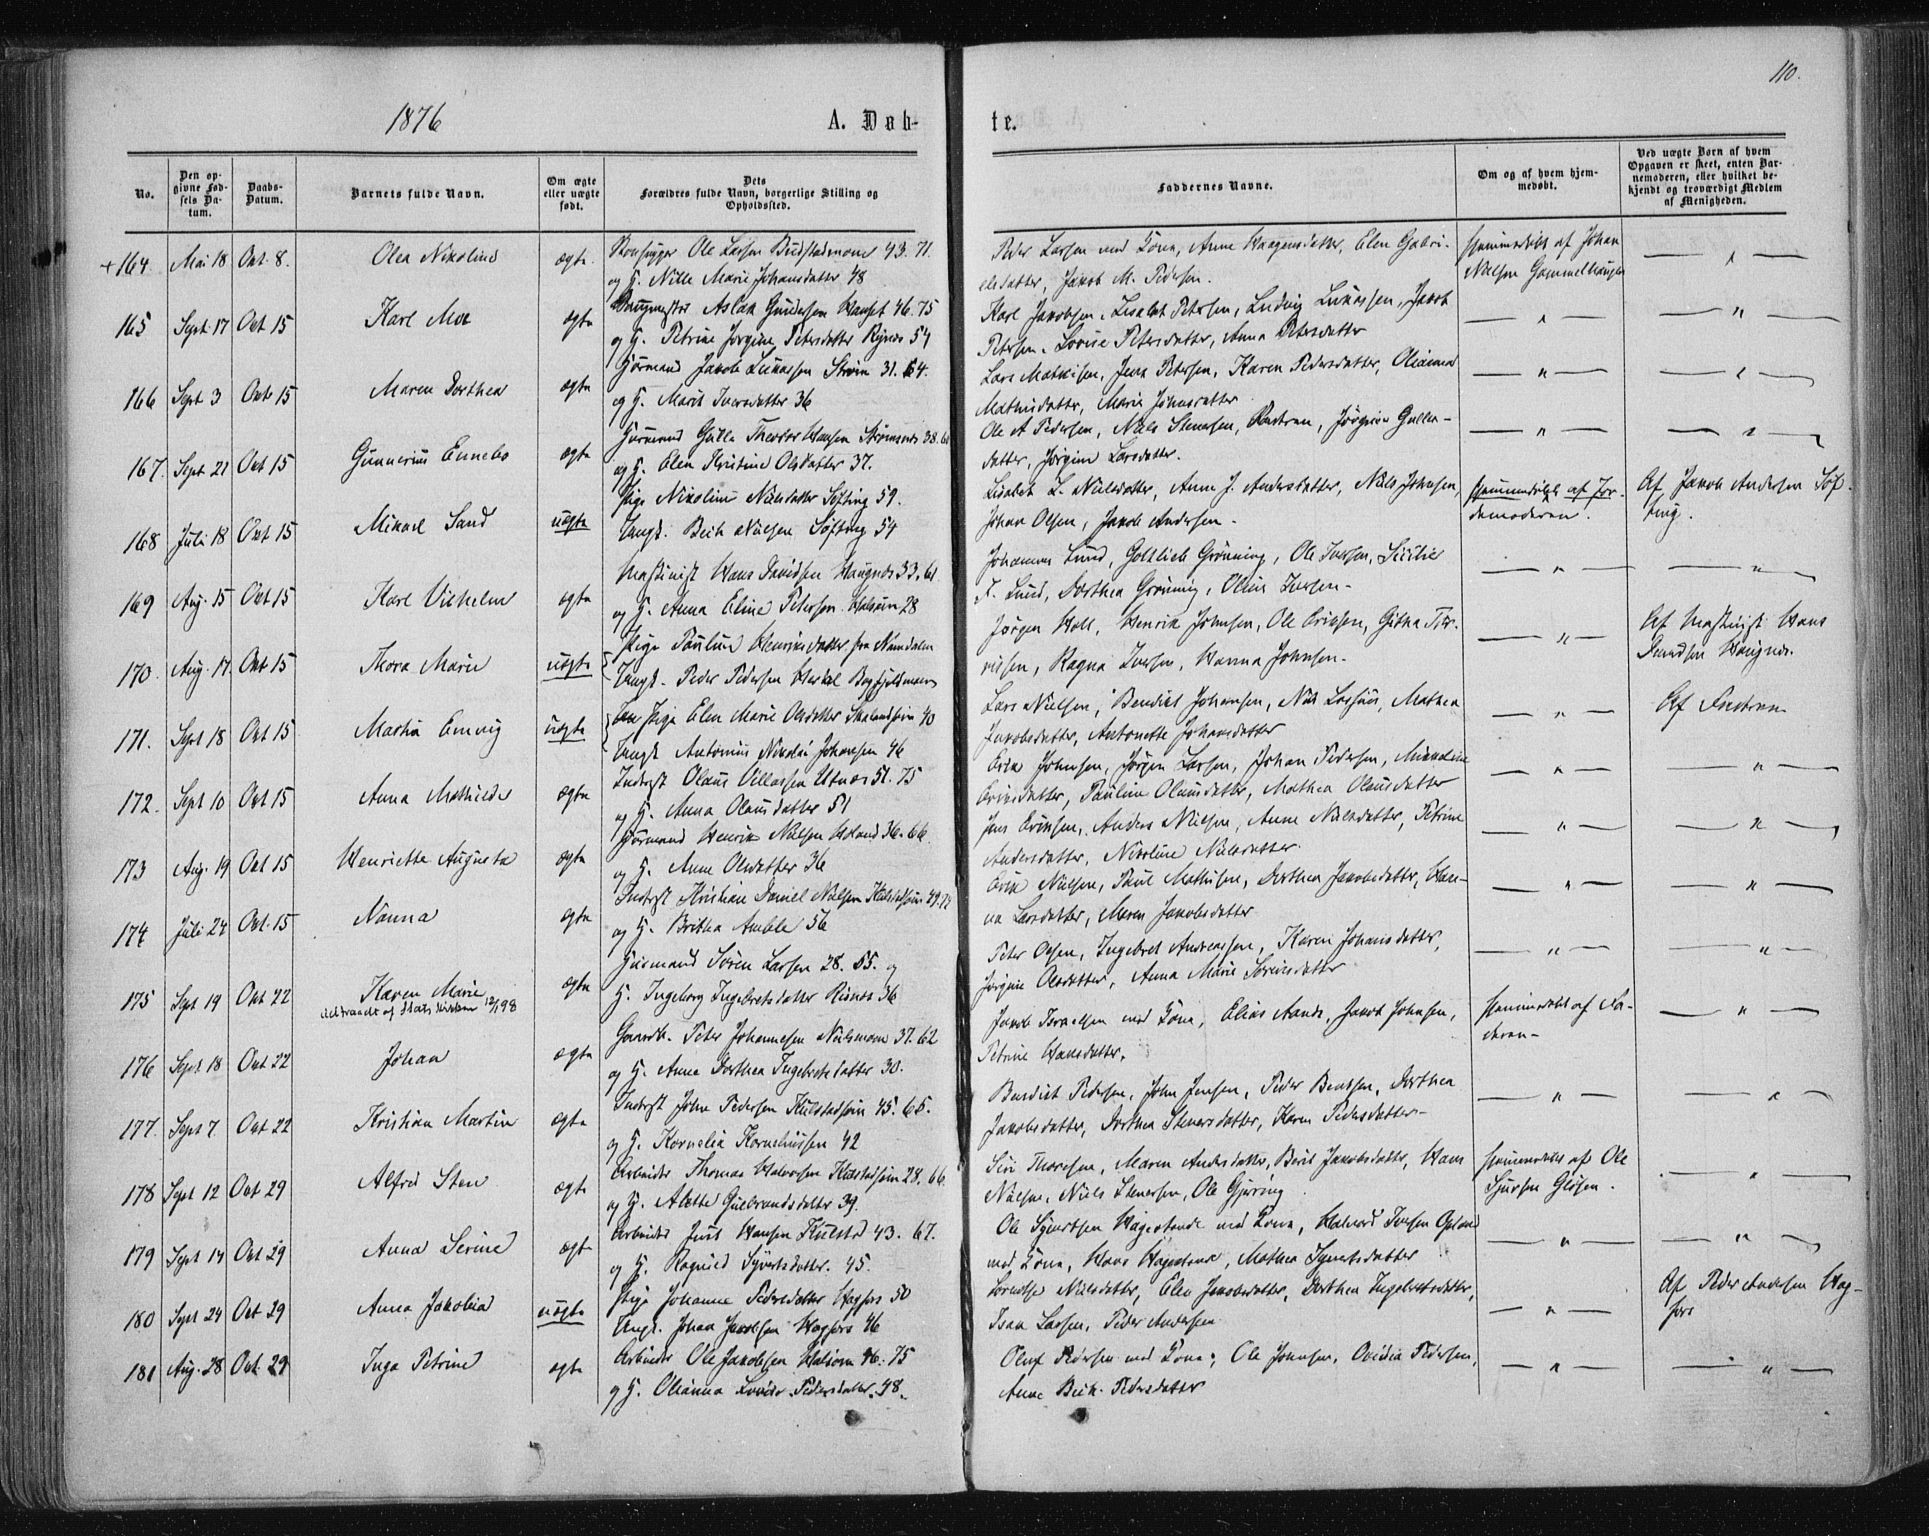 110.
1876
A. Døb-
te.
No.
Den op-
givne Fød-
sels Da-
tum.
Daabs-
Datum.
Barnets fulde Navn.
Om ægte
eller uægte
født.
Dets
Forældres fulde Navn, borgerlige Stilling og
Opholdssted.
Faddernes Navne.
Om og af hvem hjem-
medøbt.
Ved uægte Børn af hvem
Opgaven er skeet, enten Bar-
nemoderen, eller hvilket be-
kjendt og troværdigt Medlem
af Menigheden.
+164 Mai 18 Oct. 8. Olea Nikoline ægte. Ole Larsen 43. 71.
og H. Marie Johansdatter 48
Peder Larsen med Kone, Anne Haagensdatter, Elen Gabri-
elsdatter, Jakob M. Pedersen.
Hjemmedøbt af Johan
Nielsen Gammelhaugen
165 Sept. 17 Oct 15 Karl ægte Aslak Gundersen 46. 75
og H. Petrine Jørgine Petersdatter 54
Karl Jakobsen, Lisabet Petersen, Ludvig Lukassen, Jakob
Petersen, Lovise Petersdatter, Anna Petersdatter
166 Sept 3 Oct 15 Maren Dorthea ægte Gjørmand Jakob Lukassen Strøm 31. 64.
og H. Marit Iversdatter 36
Lars Mathisen, Jens Petersen, Karen Pedersdatter,
Mathisdatter, Marie Johnsdatter
167. Sept 21 Oct 15 Gunnerius ægte Theodor Hansen 38. 61
og H. Elen Kristine Olsdatter 37.
Ole A Pedersen, Niels Stenersen, Jørgine
datter, Jørgine Larsdatter.
168 Juli 18 Oct 15 Mikael Sand uægte Pige Nikoline Nielsdatter Søfting 59.
Ungk. Nielsen Søfting 54
Lisabet L. Nielsdatter, Anne J. Andersdatter, Niels Johnsen,
Johan Olsen, Jakob Andersen.
Hjemmedøbt af Jor-
demoderen.
Af Jakob Andersen Søf-
ting.
169 Aug. 15 Oct 15 Karl Vilhelm ægte Maskinist Hans Davidsen Haugnes 33. 61
og H. Anna Eline Petersen 28
Johannes Lund, Gottlieb Grønning, Ole Iversen,
F. Lund, Dorthea Grønning, Iversen
170. Aug. 17. Oct 15 Thora Marie uægte Pige Pauline Henriksdatter fra Namdalen
Ungk. Peder Pedersen
Jørgen Holl, Henrik Johnsen, Ole Eriksen,
Ragna Iversen, Hanna Johnsen.
Af Maskinist Hans
Davidsen Haugnes.
171. Sept 18 Oct 15 Martin Emvig uægte Pige Elen Marie Olsdatter 40
Ungk Antonius Nikolai Johansen 46
Lars Nielsen, Benedict Johansen, Mathea
Jakobsdatter, Antonette Johansdatter
Af Faderen
172. Sept 10 Oct 15 Anna Mathilde ægte Inderst Olaus Villassen Utnes 51. 75
og H. Anna Olausdatter 51
Erik Johnsen, Jørgen Larsen, Johan Pedersen,
Eriksdatter, Pauline Olausdatter, Mathea Olausdatter
173 Aug. 19 Oct 15 Henriette Augusta ægte Gjørmand Henrik Nielsen 36. 66.
og H. Anne Olsdatter 36
Jens Eriksen, Anders Nielsen, Anne Nielsdatter, Petrine
Andersdatter, Nikoline Nielsdatter.
174 Juli 24 Oct. 15 Nanna ægte Inderst Kristian Daniel Nielsen 49.
og H. Britha Amble 56
Erik Nielsen, Paul Mathisen, Dorthea Jakobsdatter, Han-
na Larsdatter, Maren Jakobsdatter
175 Sept 19 Oct 22 Karen Marie
udtraadt af Statskirken 12/1 98
ægte Gaarmand Søren Larsen 28. 55. og
H. Ingeborg Ingebretsdatter Risnes 36
Peter Olsen, Ingebret Andreassen, Karen Johansdatter,
Jørgine Olsdatter, Anna Marie Sørensdatter
176 Sept 18 Oct 22 Johan ægte Gaardb. Peter Johannesen Nilsmoen 37. 62
og H. Anne Dorthea Ingebretsdatter 30.
Jakob Israelsen med Kone, Elias Aande, Jakob Johnsen,
Petrine Hansdatter.
Hjemmedøbt af Fa-
deren
177. Sept 7 Oct 22 Kristian Martin ægte Inderst John Pedersen 45. 65.
og H. Kornelia Korneliussen 42
Benedict Pedersen, John Jensen, Peder Bentsen, Dorthea
Jakobsdatter, Dorthea Stenersdatter, Karen Pedersdatter
178 Sept 12 Oct 29 Alfred Sten ægte Arbeider Thomas Halvorsen 28. 66.
og H. Alette Gulbrandsdatter 39.
Siri Thoresen, Maren Andersdatter, Berit Jakobsdatter, Hans
Nielsen, Niels Stenersen, Ole Gjøring
Hjemmedøbt af Ole
Sjursen Gløsen.
179 Sept 14 Oct 29 Anna Serine ægte Arbeider Hansen Kulstad 43. 67.
og H. Ragnild Syvertsdatter. 45.
Ole Syvertsen Hagestande med Kone, Halvord Iversen
med Kone, Hans Hagestande, Mathea Syvertsdatter
180 Sept 24 Oct 29 Anna Jakobia uægte Pige Johanne Pedersdatter Hagfors 50
Ungk. Johan Jakobsen Hagfors 46
Nielsdatter, Elen Jakobsdatter, Dorthea Ingebretsdatter,
Isak Larsen, Peder Andersen
Af Peder Andersen Hag-
fors
181 Aug. 28 Oct. 29 Inga Petrine ægte Arbeider Ole Jakobsen Halsøen 46. 75
og H. Olianna Lovise Pedersdatter. 48.
Oluf Pedersen med Kone, Ole Johnsen, Ovidia Pedersen,
Anne Pedersdatter